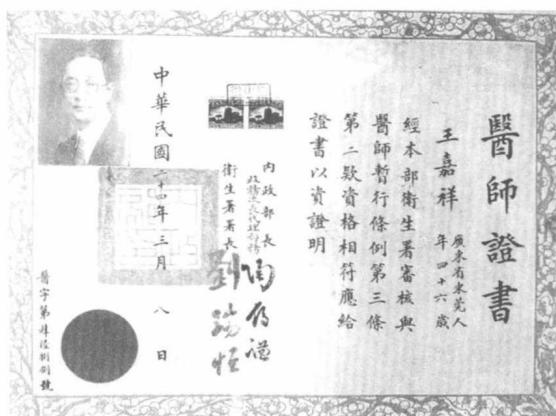 醫師證書
王嘉祥 廣東省東莞人
年四十六歲
經本部衛生署審核與
醫師暫行條例第三條
第二款資格相符應給
證書以資證明
內政部長
衛生署署長
劉瑞恒
中華民國二十四年三月八日
醫字第 號